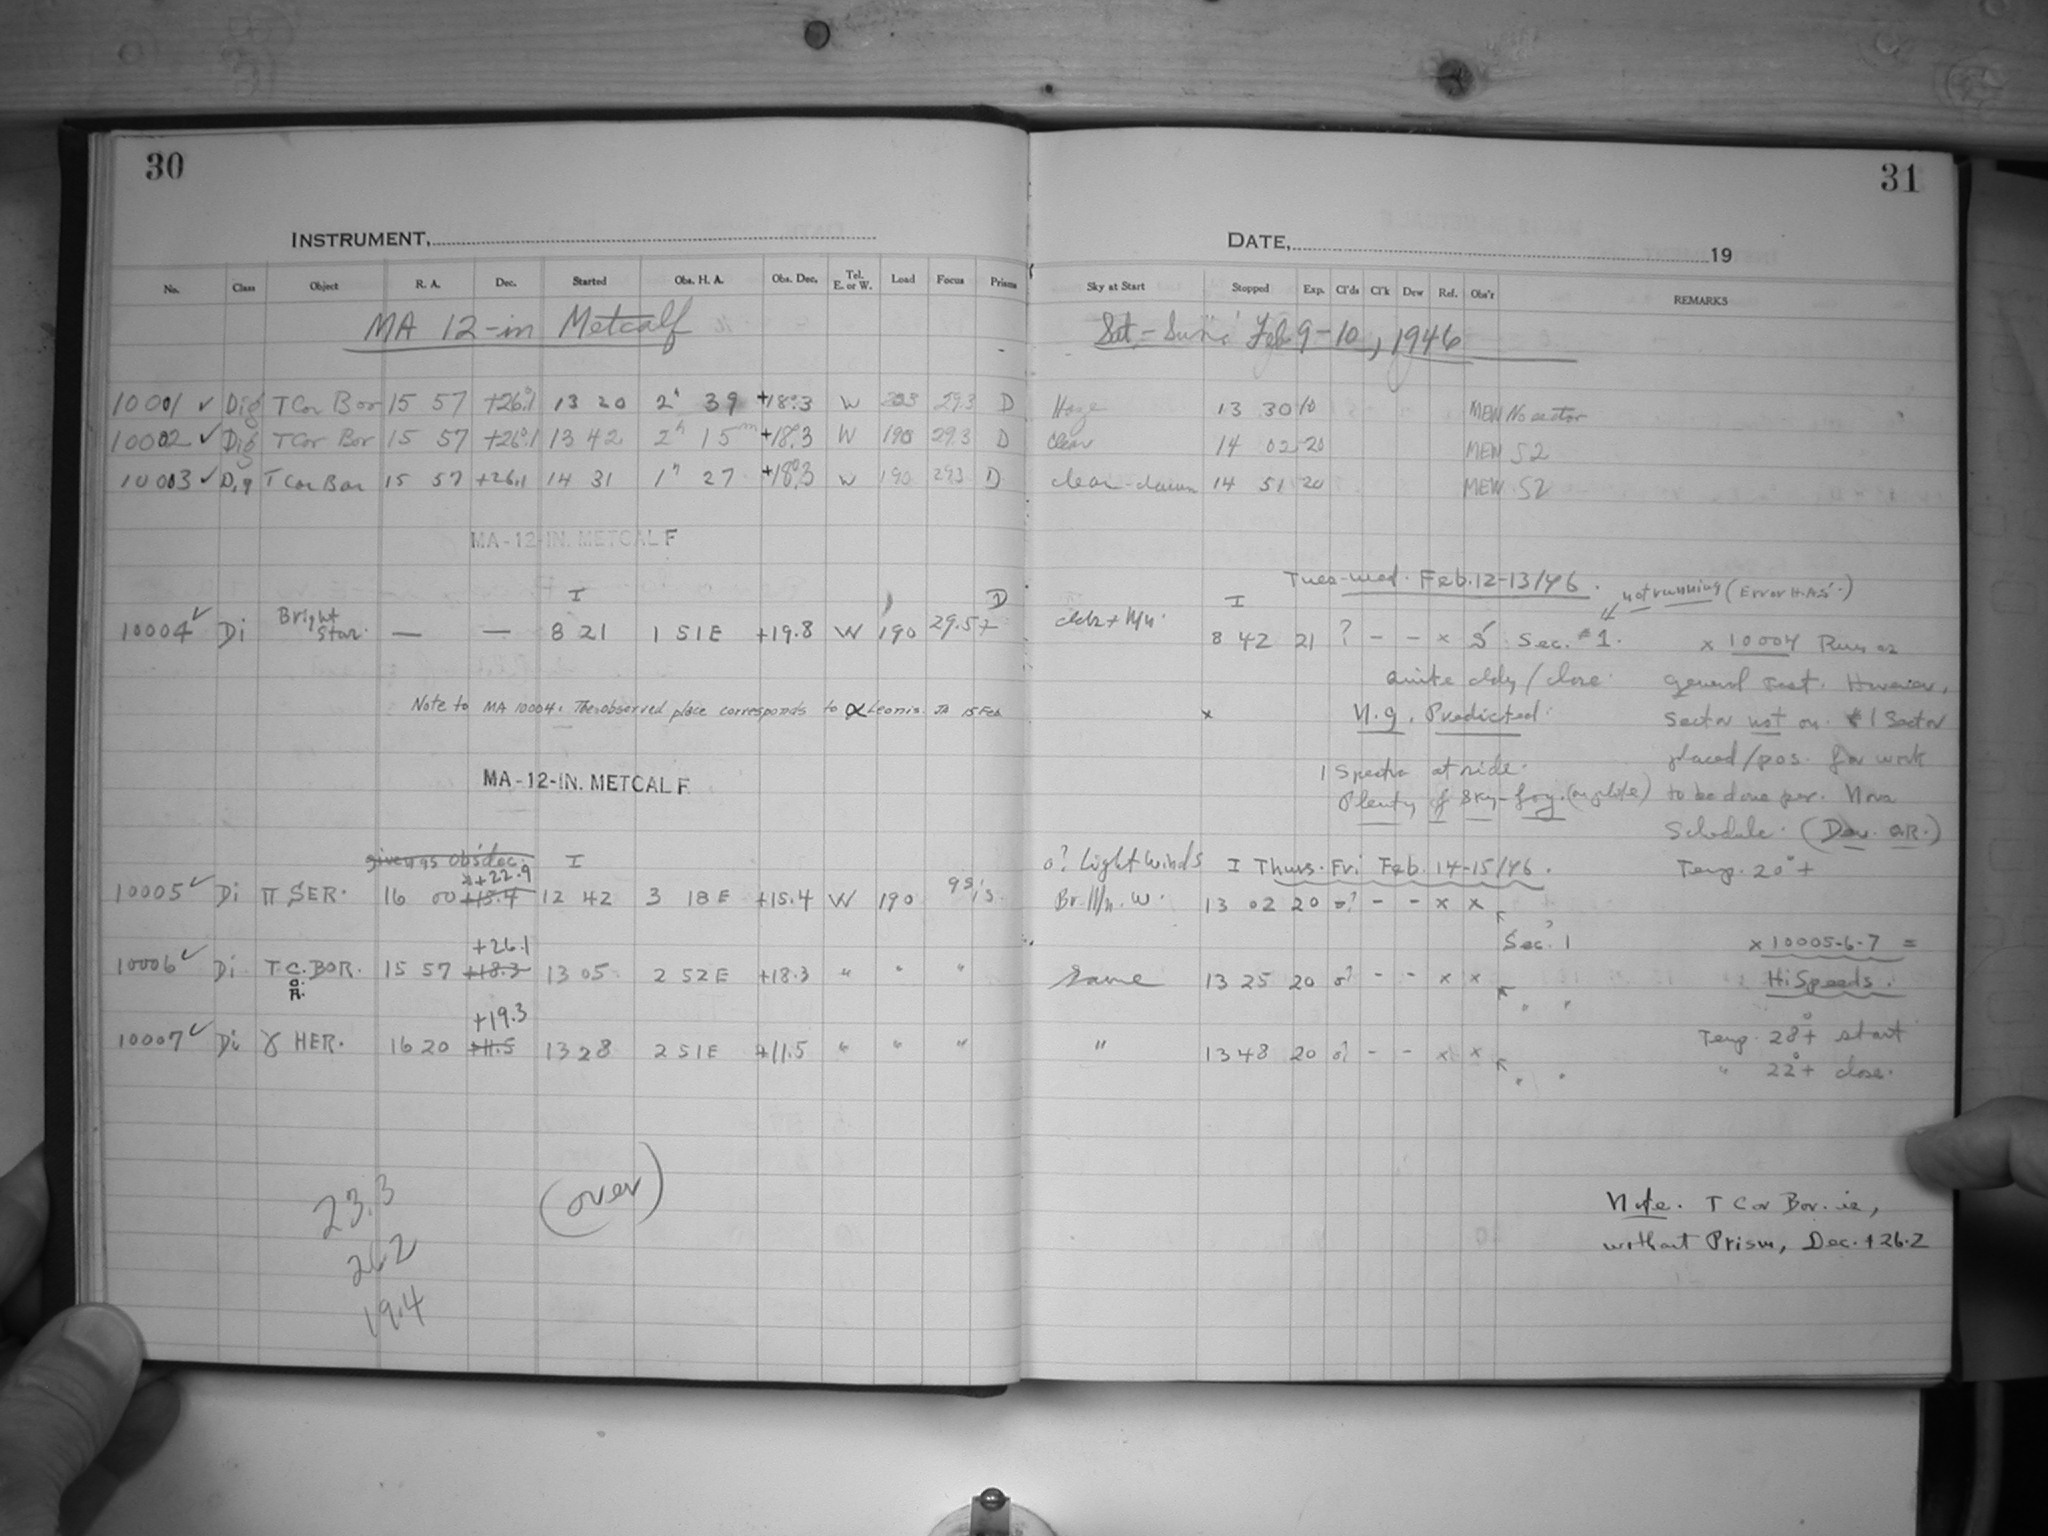 30
INSTRUMENT,
No. Class Object R. A. Dec. Started Obs. H. A. Obs. Dec. Tel. E. or W. Load Focus Prisms
MA 12-in Metcalf
10001 ✓ Dig T Cor Bor 15 57 +26.1 13 20 2h 39 +18.3 W 29.3 D
10002 ✓ Dig T Cor Bor 15 57 +26.1 13 42 2h 15m +18.3 W 190 29.3 D
10003 ✓ Dig T Cor Bor 15 57 +26.1 14 31 1h 27 +18.3 W 190 29.3 D
MA-12-IN. METCALF
I D
10004 ✓ Di Bright Star. — — 8 21 1 51E +19.8 W 190 29.5+
Note to MA 10004. The observed place corresponds to α Leonis. JA 15 Feb
MA-12-IN. METCALF
given as obs'dec. I
+22.9
10005 ✓ Di π SER. 16 00 +15.4 12 42 3 18E +15.4 W 190
+26.1
10006 ✓ Di T.C.BOR. 15 57 +18.3 13 05 2 52E +18.3 " " "
+19.3
10007 ✓ Di γ HER. 16 20 +11.5 13 28 2 51E +11.5 " " "
23.3
26.2
19.4
(over)
31
DATE, 19
Sky at Start Stopped Exp. Cl'ds Cl'k Dew Ref. Obs'r REMARKS
Sat.-Sun. Feb 9-10, 1946
Haze 13 30 10 MEW No sector
Clear 14 02 20 MEW S2
clear-dawn 14 51 20 MEW S2
Tues-Wed. Feb. 12-13/46. not running (Error H.A's.)
I
8 42 21 ? - - x Sec. #1. x 10004 Run as
quite cldy/close. general test. However,
x N.g. Predicted. Sector not on. #1 Sector
placed/pos. for work
1 Spectra at side.
Plenty of Sky-fog. to be done per. Nova
Schedule.
o? Light Winds I Thurs. Fri Feb. 14-15/46. Temp. 20°+
Br. W. 13 02 20 o? - - x x
Sec. 1 x 10005-6-7 =
Same 13 25 20 o? - - x x " " Hi Speeds.
Temp. 28°+ start
" 13 48 20 o? - - x x " " " 22°+ close.
Note. T Cor Bor. is,
without Prism, Dec. +26.2